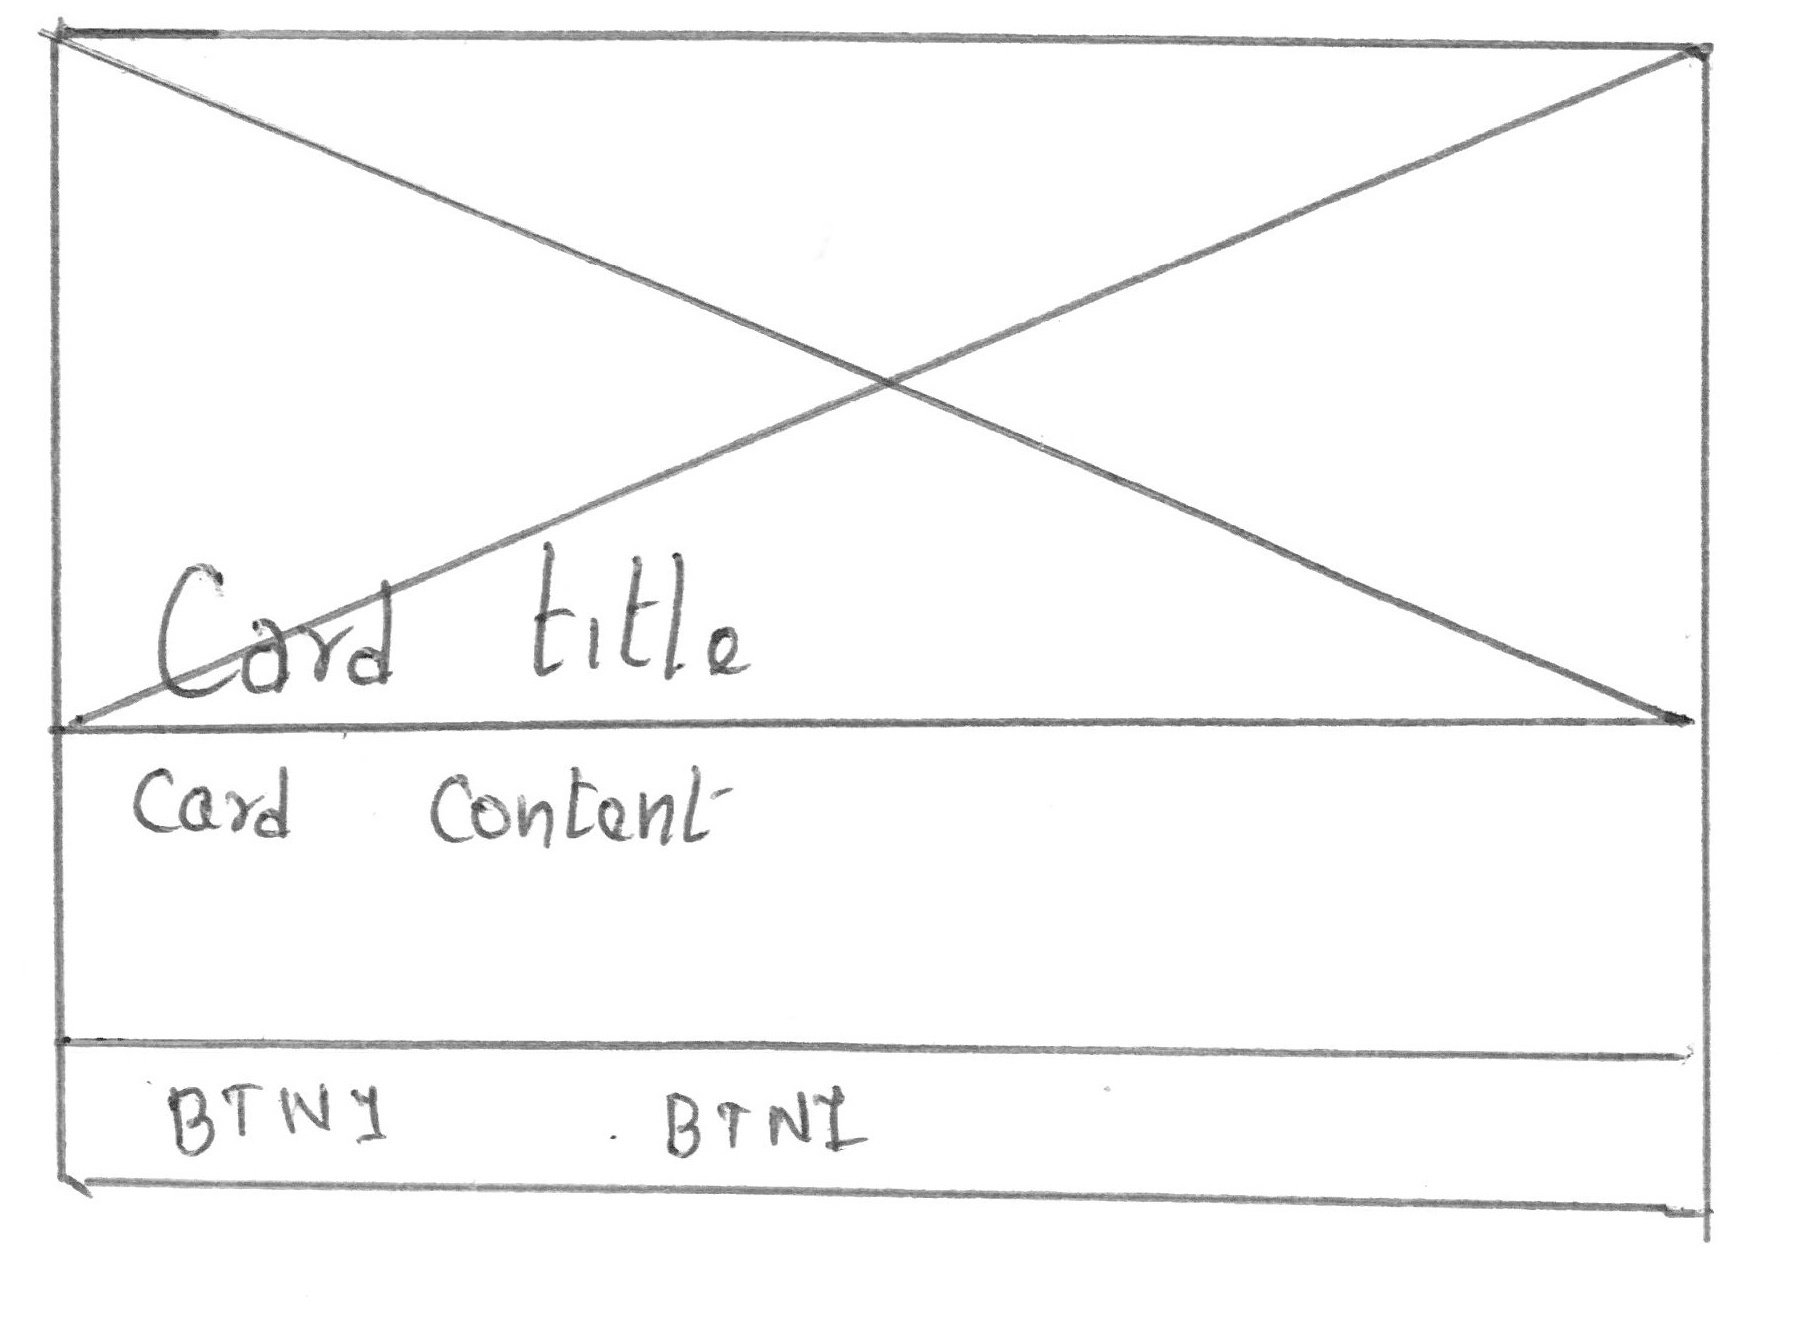 Card title
Card Content
BTN1 BTN1